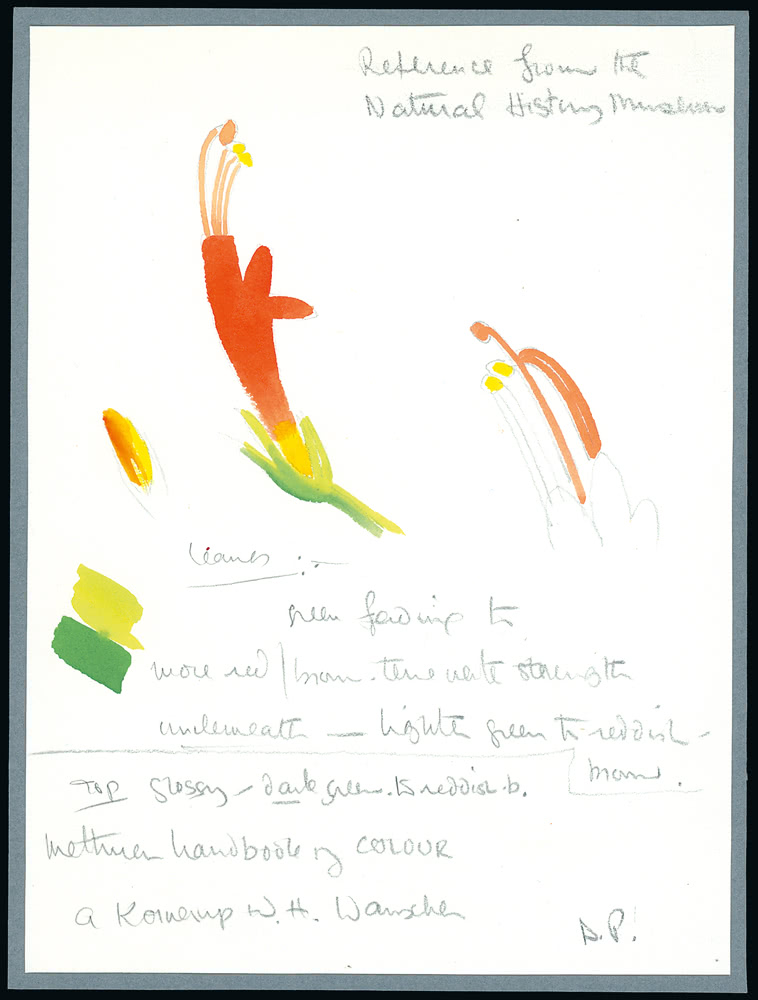 Reference from the
Natural History Museum
Leaves :-
green fading to
more red / brown. strength
underneath — lighter green to reddish-
brown.
Top glossy – dark green. to reddish b.
Methuen handbook of COLOUR
A Kornerup W. H. Wanscher
D.P.